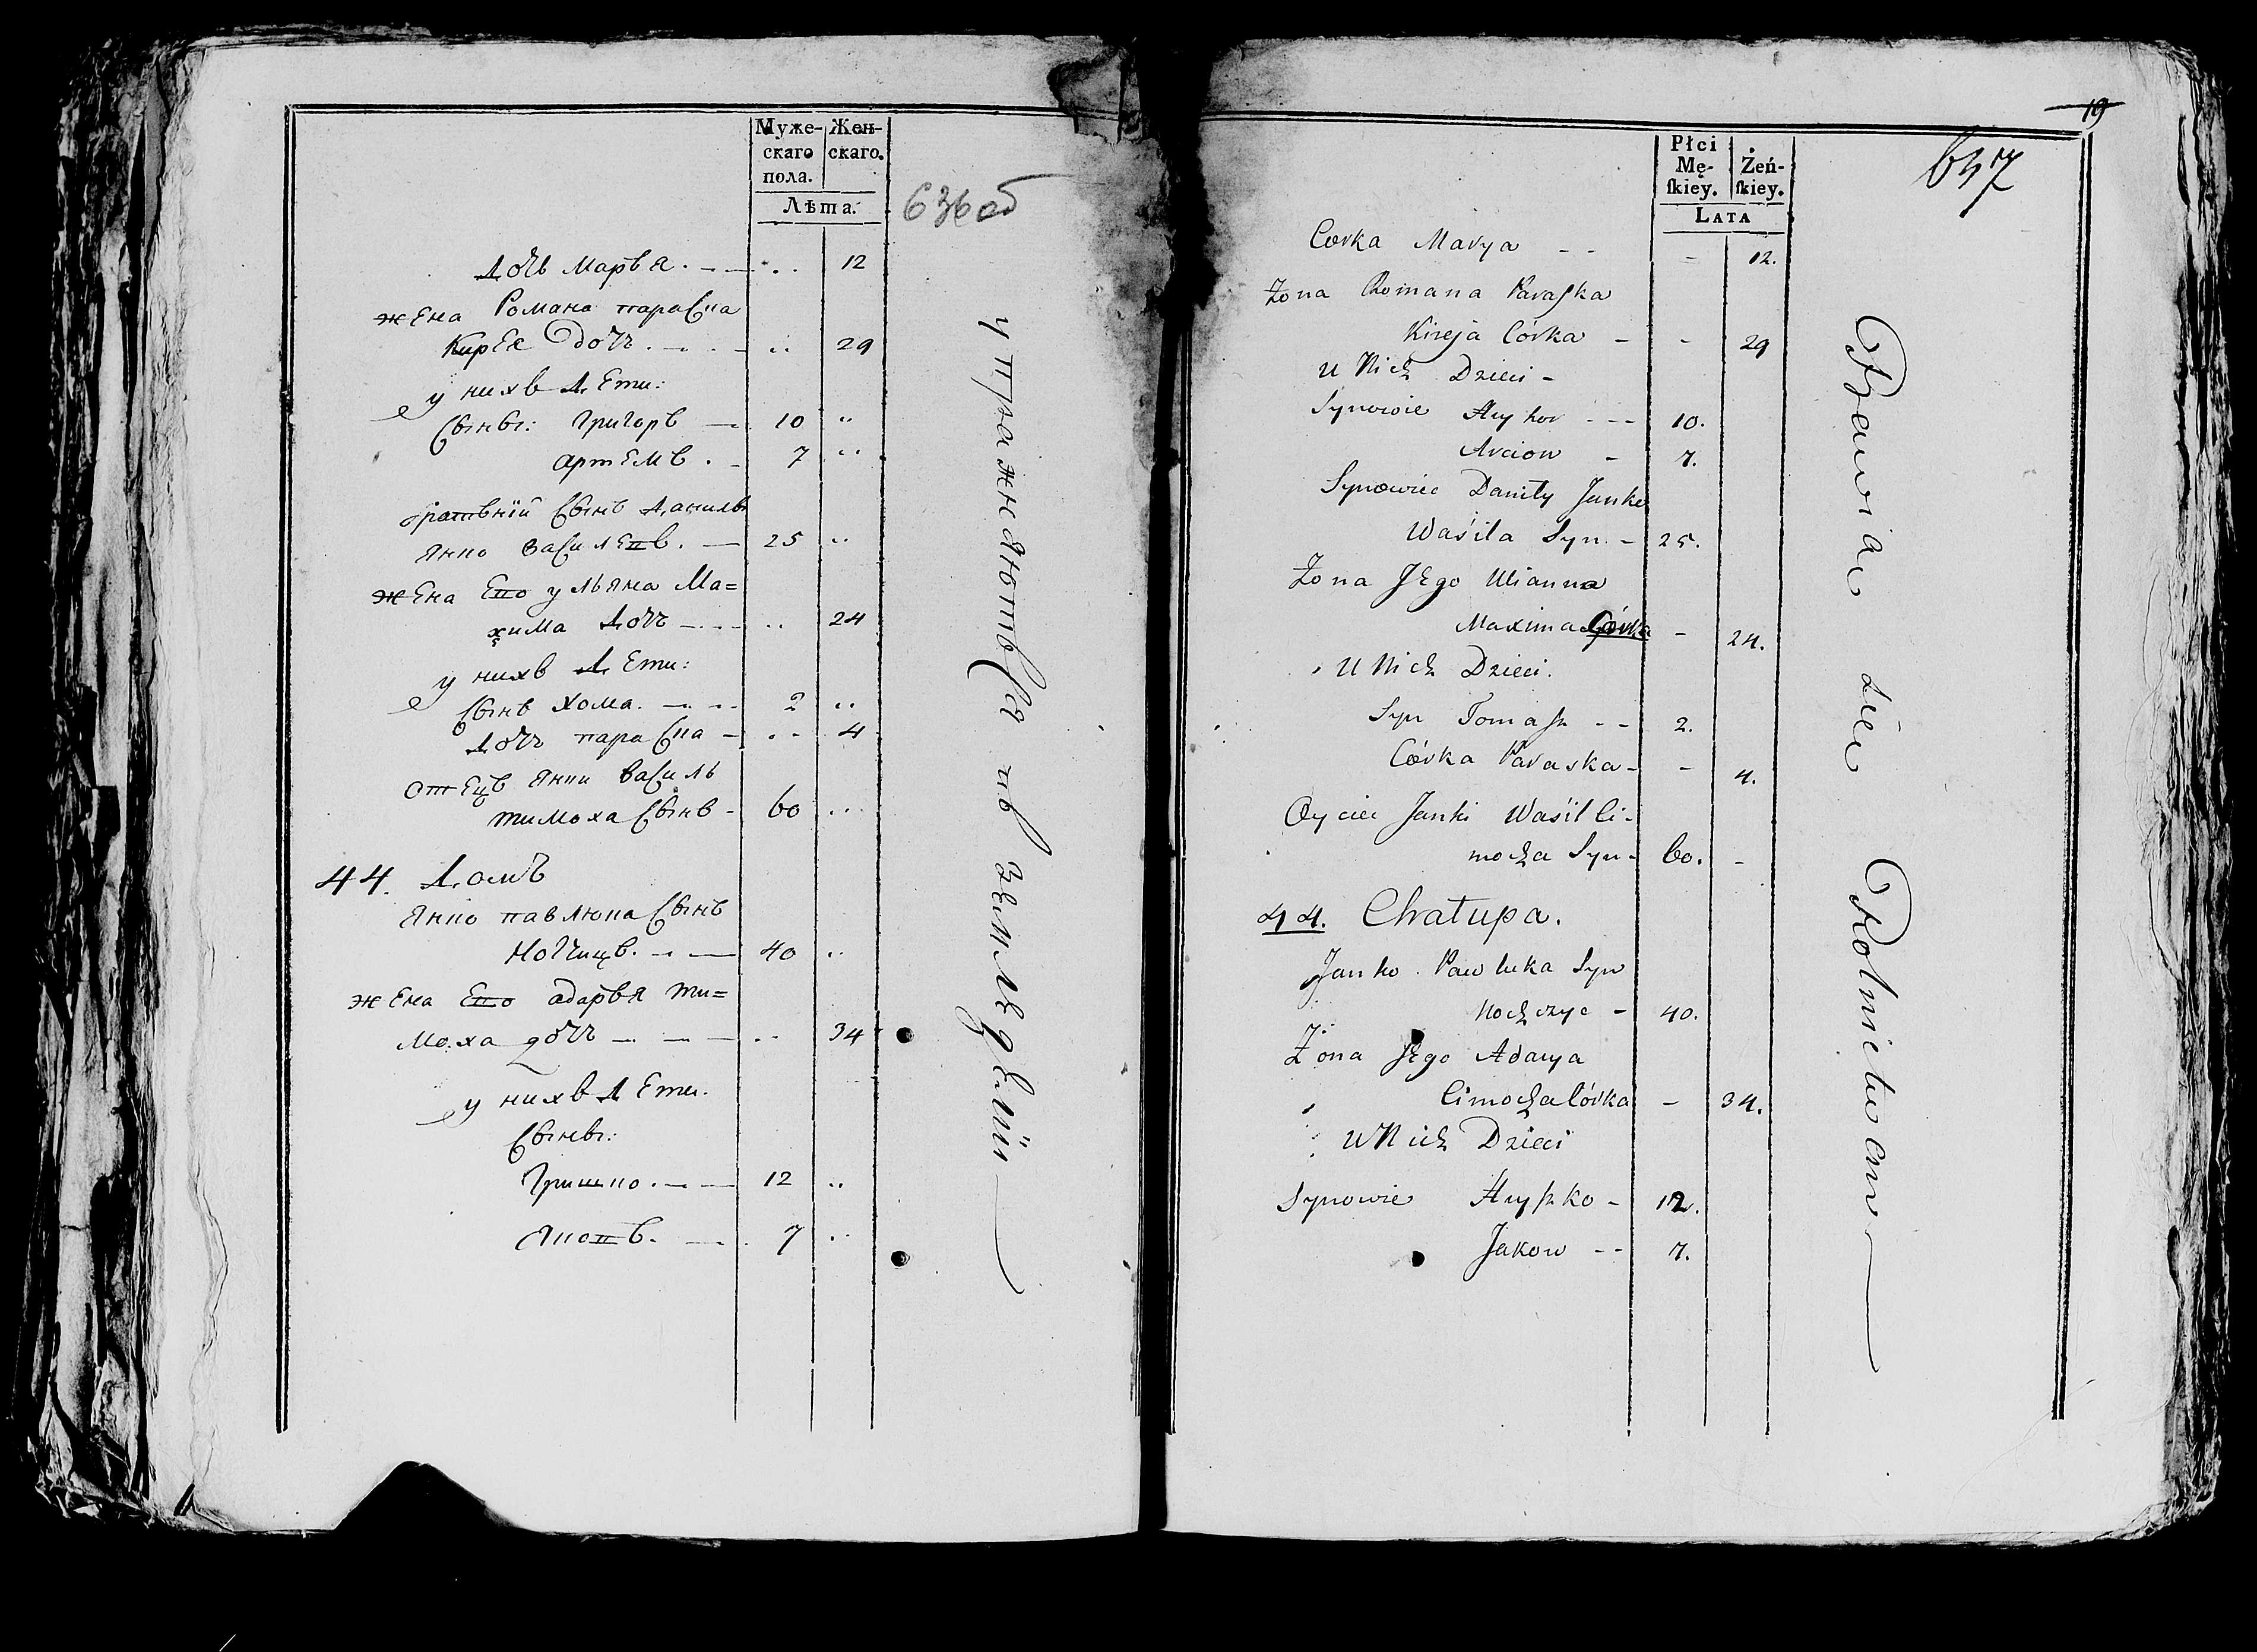 Муже-
скаго
пола.
Жен-
скаго.
Лѣта.
636 об
Дочь Марья. — .. 12
жена Романа параска
Кирея дочь. — .. 29
у нихъ Дети:
Сыны: Григоръ — 10 ..
артемъ. — 7 ..
братьній Сынъ Данилы
Янко василевъ. — 25 ..
жена Его ульяна Ма=
хима Дочь — .. 24
у нихъ Дети:
Сынъ Хома. — 2 ..
Дочь параска — .. 4
отецъ Янки василь
тимоха Сынъ - 60 ..
44. Домъ
Янко павлюка Сынъ
Ночицъ. — 40 ..
жена Его адарья Ти=
моха дочь — .. 34
у нихъ Дети.
Сыны:
Гришко. — 12 ..
Яковъ. — 7 ..
упражняютьса въ земледелїи
19
Płci
Mę-
ſkiey.
Żeń-
ſkiey.
LATA
637
Corka Marya - - - 12.
Żona Romana Paraſka
Kireja Córka - - 29
U Nich Dzieci -
Synowie Hryhor - - - 10.
Arciom - 7.
Synowiec Daniły Janko
Waśila Syn. - 25.
Żona JEgo Ulianna
Maxima Córka - 24.
U Nich Dzieci.
Syn Tomaſz - - 2.
Córka Paraska - - 4.
Oyciec Janki Waśil Ci-
mocha Syn - 60. -
44. Chałupa.
Janko Pawluka Syn
Nochczyc - 40.
Żona JEgo Adarya
Cimocha Córka - 34.
U Nich Dzieci
Synowie Hryſzko - 12.
Jakow - - 7.
Bawią się Rolnictwem